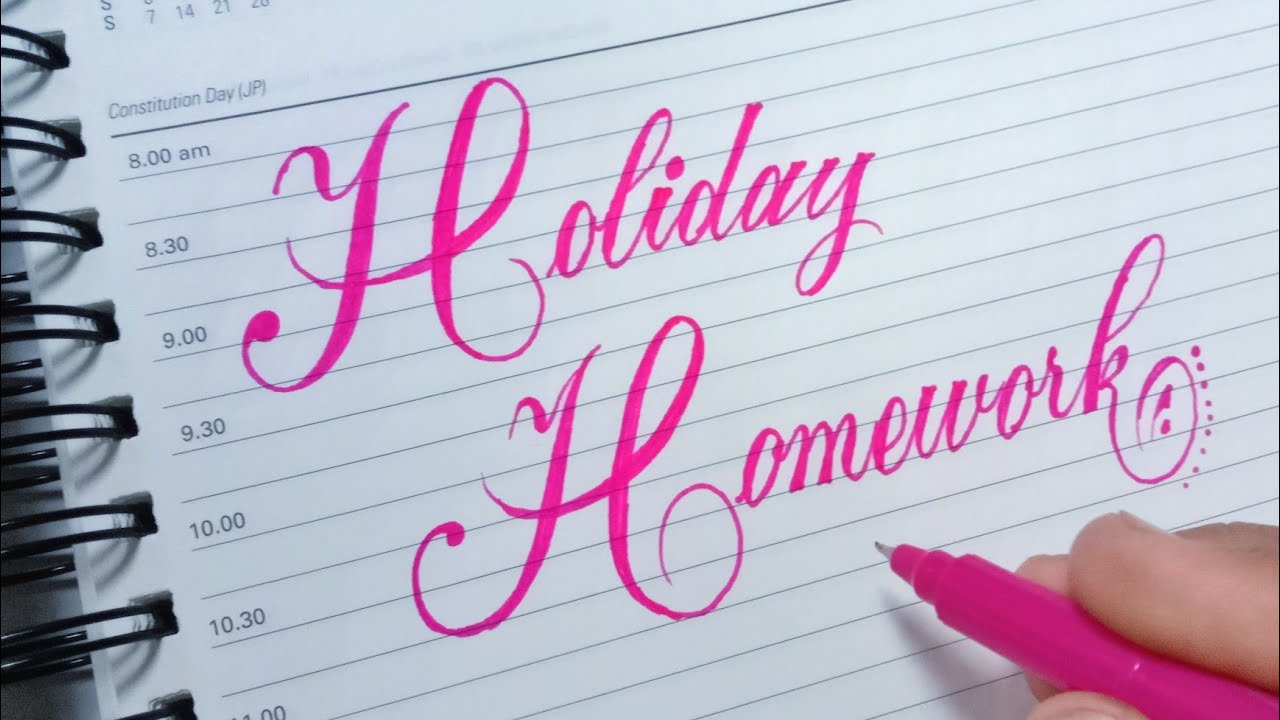 S 7 14 21 28
Constitution Day (JP)
8.00 am
8.30
9.00
9.30
10.00
10.30
11.00
Holiday
Homework